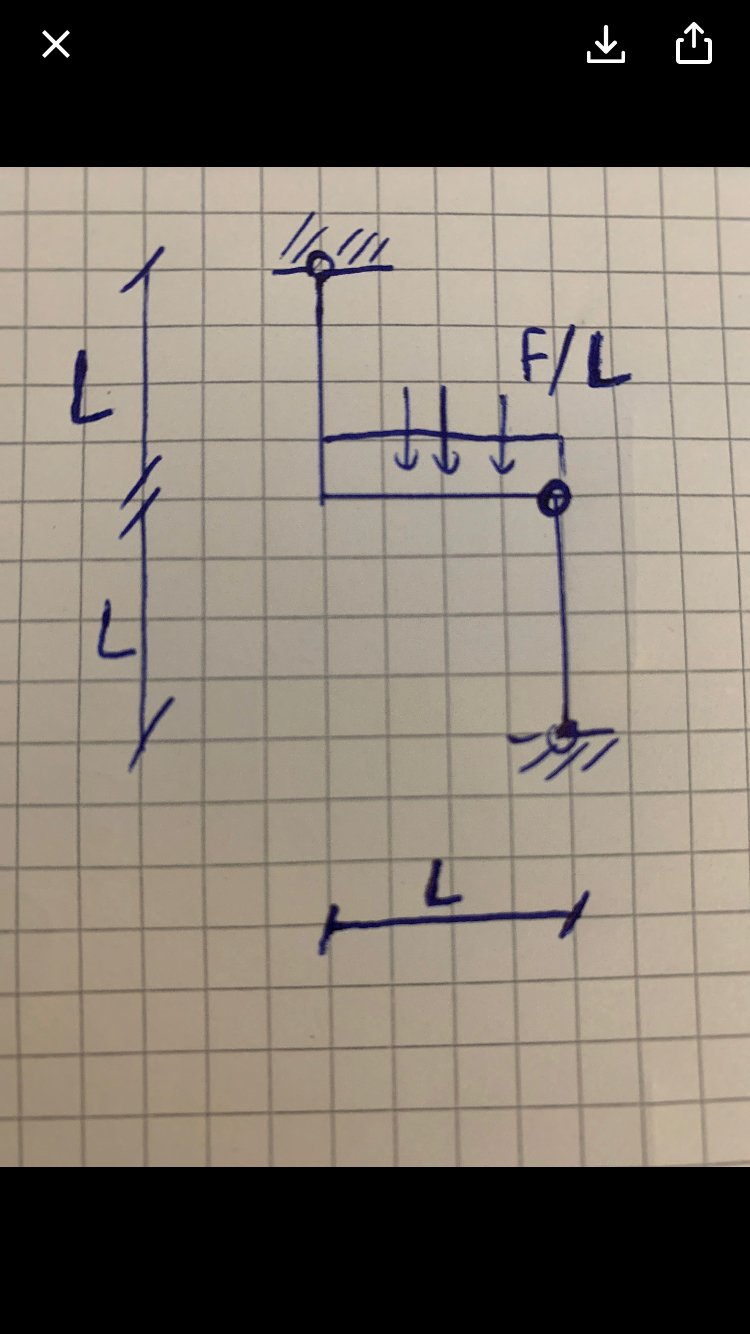 F/L
L
L
L